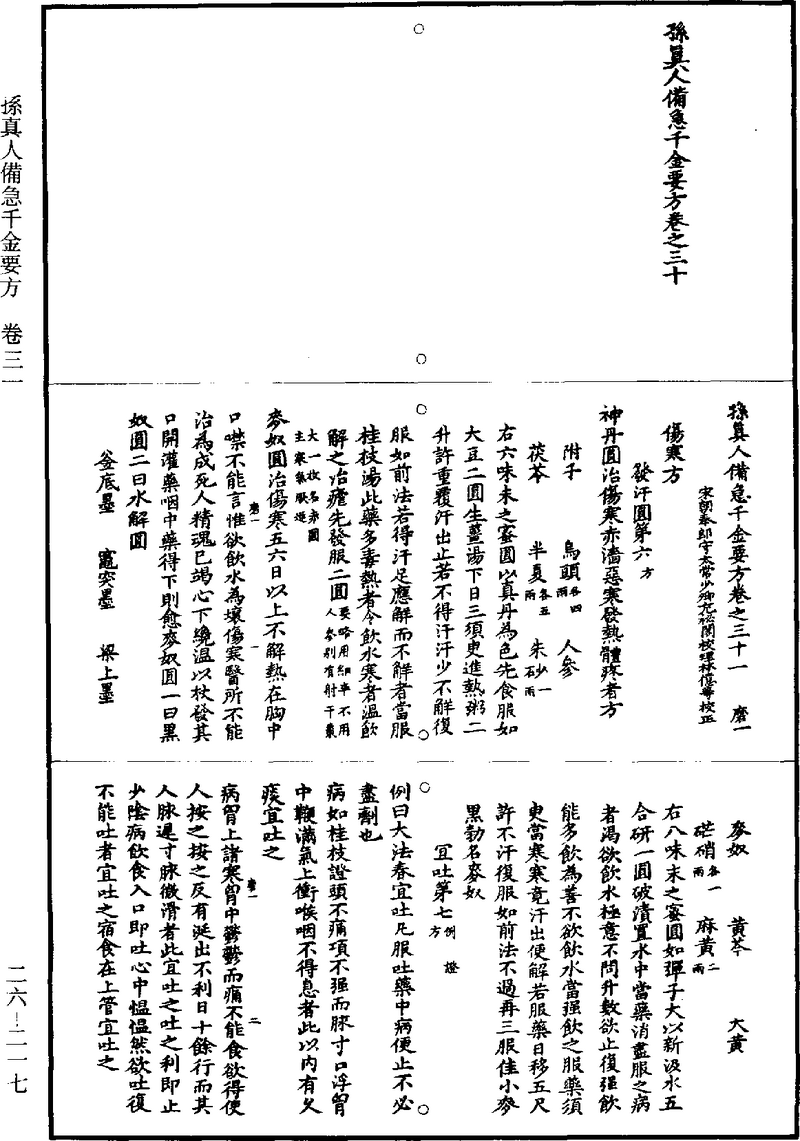 孫真人備急千金要方卷之三十
孫真人備急千金要方卷之三十一　磨一
宋朝奉郎守太常少卿充秘閣校理林億等校正
傷寒方
發汗圓第六方
神丹圓治傷寒赤濇惡寒發熱體疼者方
附子　烏頭各四兩　人參
茯苓　半夏各五兩　朱砂一兩
右六味末之蜜圓以真丹為色先食服如
大豆二圓生薑湯下日三須臾進熱粥二
升許重覆汗出止若不得汗汗少不解復
服如前法若得汗足應解而不解者當服
桂枝湯此藥多毒熱者令飲水寒者溫飲
解之治瘧先發服二圓要略用細辛不用人參別有射干棗
大一枚名赤圓主寒氣厥逆
麥奴圓治傷寒五六日以上不解熱在胸中
口噤不能言惟欲飲水為壞傷寒醫所不能
治為成死人精魂已竭心下纔溫以杖發其
口開灌藥咽中藥得下則愈麥奴圓一曰黑
奴圓二曰水解圓
釜底墨　竈突墨　梁上墨
麥奴　黃芩　大黃
芒硝各一兩　麻黃二兩
右八味末之蜜圓如彈子大以新汲水五
合研一圓破漬置水中當藥消盡服之病
者渴欲飲水極意不問升數欲止復强飲
能多飲為善不欲飲水當强飲之服藥須
臾當寒寒竟汗出便解若服藥日移五尺
許不汗復服如前法不過再三服佳小麥
黑勃名麥奴
宜吐第七例　證　方
例曰大法春宜吐凡服吐藥中病便止不必
盡劑也
病如桂枝證頭不痛項不强而脉寸口浮胷
中鞕滿氣上衝喉咽不得息者此以內有久
痰宜吐之
病胷上諸寒胷中鬱鬱而痛不能食欲得使
人按之按之反有涎出不利日十餘行而其
人脉遲寸脉微滑者此宜吐之吐之利即止
少陰病飲食入口即吐心中愠愠然欲吐復
不能吐者宜吐之宿食在上管宜吐之
磨一
一
磨一
二
孫真人備急千金要方　卷三一
二六—二一七